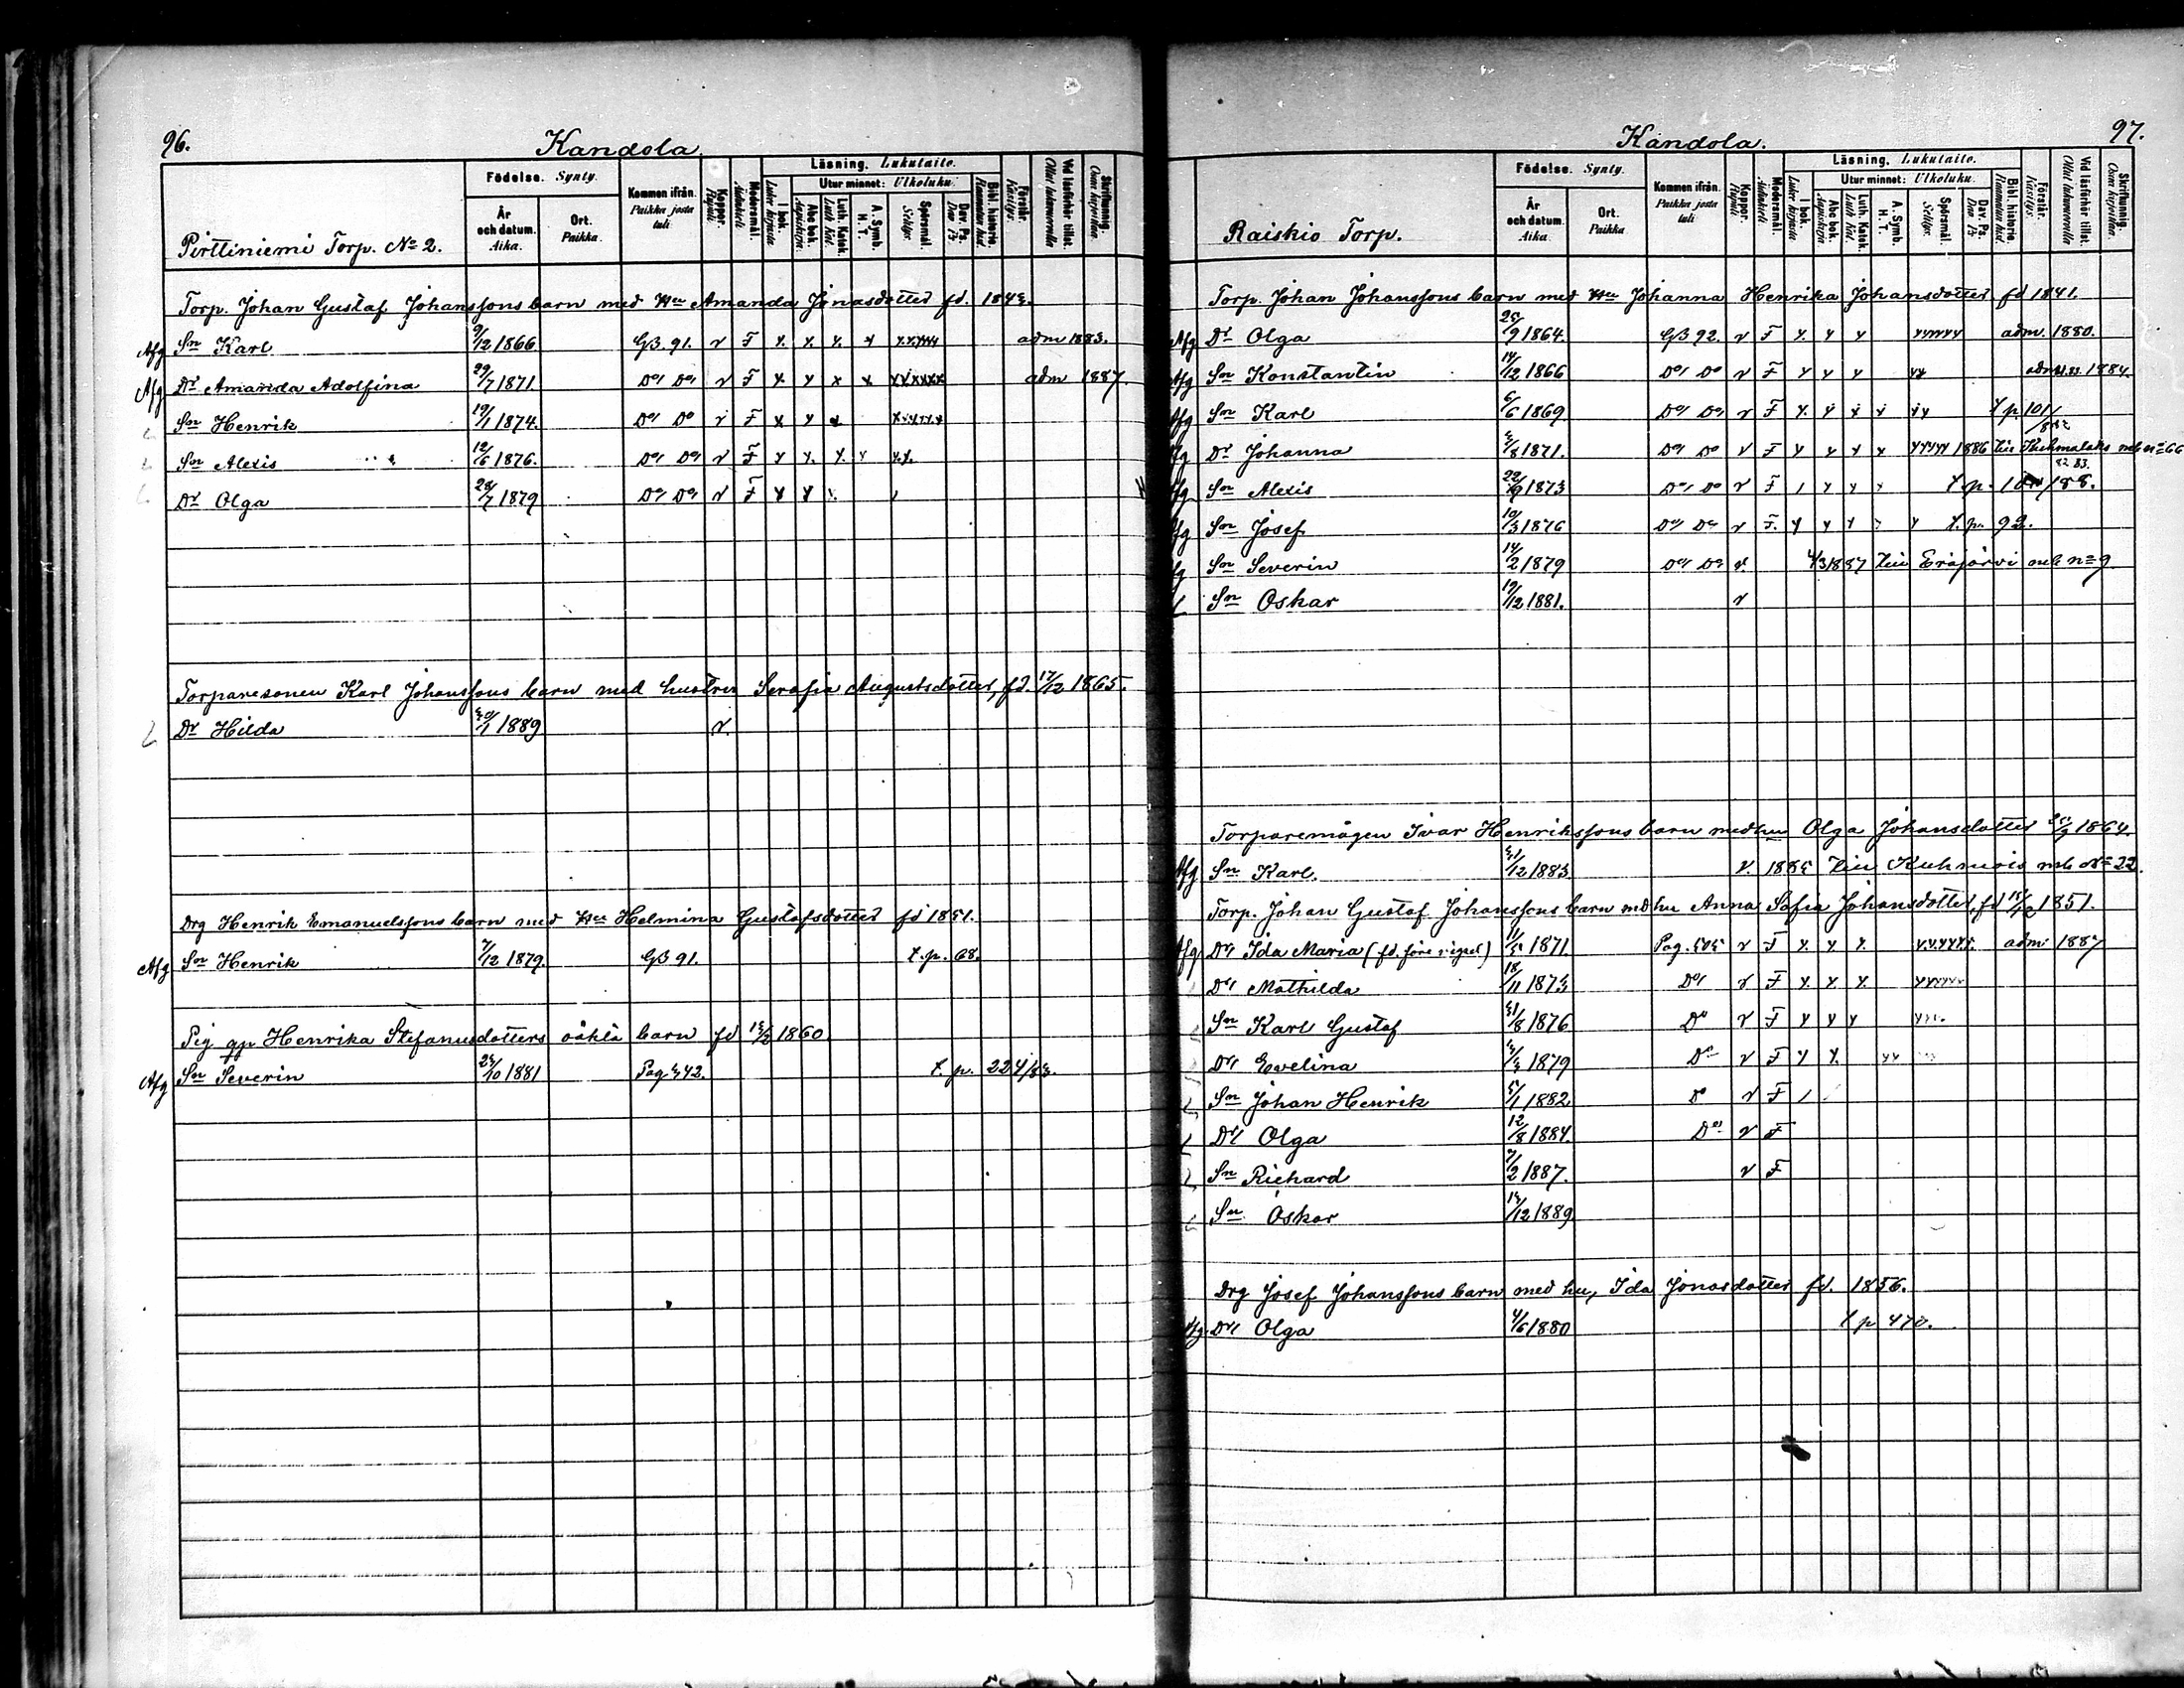 96.
Kandola
Pirttiniemi Torp. No 2.
Födelse. Synty.
År och datum. Aika.
Ort. Paikka.
Kommen ifrån. Paikka josta tuli
Koppor. Rupuli
Modersmål. Äidinkieli
Läsning. Lukutaito.
I bok. Luku kirjasta
Utur minnet: Ulkoluku.
Abc bok. Aapiskirja
Luth. Katek. Luth Kat.
A. Symb. H. T.
Spörsmål Selitys.
Dav. Ps. Dav Ps
Bibl. historie
Förstår. Käsitys.
Vid läsförhör tillst. Ollut lukuvuorolla
Skriftunnig.
Torp. Johan Gustaf Johanssons barn med Hu Amanda Jonasdotter fd. 1843.
Afg Sn Karl 9/12 1866 GB. 91. v F x x x x xxxxx adm 1883.
Afg Dr Amanda Adolfina 29/7 1871 Do Do v F x x x x xxxxxx adm 1887.
Sn Henrik 19/1 1874 Do Do v F x x x xxxxxx
Sn Alexis 12/6 1876. Do Do v F x x x x x.x.
Dr Olga 28/7 1879 Do Do v F x x
Torparesonen Karl Johanssons barn med hustru Serafia Augustsdotter, fd. 17/12 1865.
Dr Hilda 1889 v.
Drg Henrik Emanuelssons barn med Hu Helmina Gustafsdotter fd 1851.
Afg Sn Henrik 7/12 1879. GB 91. t.p. 68.
Pig Henrika Stefanusdotters oäkta barn fd 1860
Afg Sn Severin 1881 Pag 342. t. p. 224/83.
97.
Kandola.
Raiskio Torp.
Födelse. Synty.
År och datum. Aika.
Ort. Paikka
Kommen ifrån. Paikka josta tuli
Koppor. Rupuli
Modersmål. Äidinkieli
Läsning. Lukutaito.
I bok. Luku kirjasta
Utur minnet: Ulkoluku.
Abc bok. Aapiskirja
Luth. Katek. Luth Kat.
A. Symb. H. T.
Spörsmål. Selitys.
Dav. Ps. Dav Ps
Bibl. historie
Förstår. Käsitys.
Vid läsförhör tillst. Ollut lukuvuorolla
Skriftunnig.
Torp. Johan Johanssons barn med Hu Johanna Henrika Johansdotter fd 1841.
Afg Dr Olga 25/9 1864. GB 92. v F x x x xxxxxx adm. 1880.
Afg Sn Konstantin 14/12 1866 Do Do v F x x x xx adm 1884.
Afg Sn Karl 6/6 1869 Do Do v F x x x x xx t p. 101/
Afg Dr Johanna 1871. Do Do v F x x x x xxxxx 1886 till Kuhmalaks mb n=66
Afg Sn Alexis 22/9 1873 Do Do v F / x x x t.p. /88.
Afg Sn Josef 10/3 1876 Do Do v F. x x x x t.p. 92.
Afg Sn Severin 14/2 1879 Do Do v 4/3 1887 till Eräjärvi mb n=9
Sn Oskar 19/12 1881. v
Torparemågen Ivar Henrikssons barn med hu Olga Johansdotter 25/9 1864.
Afg Sn Karl. 12 1883. v. 1885 till Kuhmois mb No 22.
Torp. Johan Gustaf Johanssons barn md hu Anna Sofia Johansdotter, fd 1851.
Afg Dr Ida Maria (fd. före vigsel) 1871. Pag. 505 v F x x x xxxxxx. adm 1887
Dr Mathilda 18/11 1873 Do v F x x x xxxxxx
Sn Karl Gustaf 31/8 1876 Do v F x x x
Dr Evelina 1879 Do v F x x xx
Sn Johan Henrik 5/1 1882 Do v F /
Dr Olga 12/8 1884. Do v F
Sn Richard 1887. v F
Sn Oskar 1889
Drg Josef Johanssons barn med hu, Ida Jonasdotter fd. 1856.
Afg. Dr Olga 4/6 1880 t p 470.